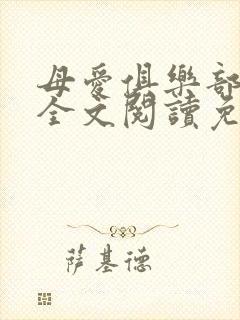 母愛俱樂部
全文閱讀免
薩基德